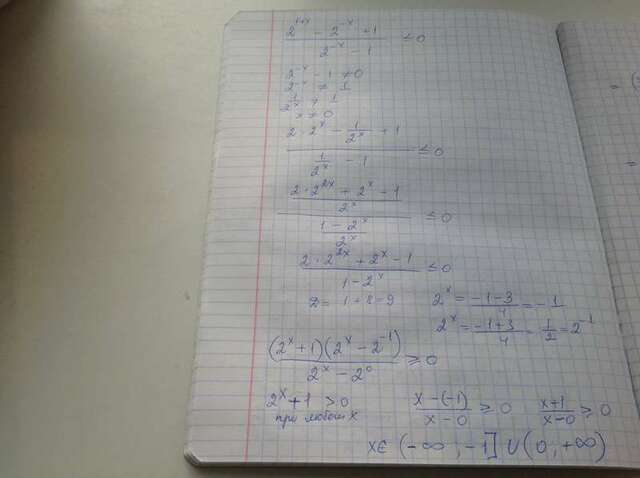 (2^{1+x} - 2^{-x} + 1)/(2^{-x} - 1) ≤ 0
2^{-x} - 1 ≠ 0
2^{-x} ≠ 1
1/2^x ≠ 1
x ≠ 0
(2 · 2^x - 1/2^x + 1)/(1/2^x - 1) ≤ 0
((2 · 2^{2x} + 2^x - 1)/2^x)/((1 - 2^x)/2^x) ≤ 0
(2 · 2^{2x} + 2^x - 1)/(1 - 2^x) ≤ 0
D = 1 + 8 = 9 2^x = (-1-3)/4 = -1
2^x = (-1+3)/4 = 1/2 = 2^{-1}
((2^x + 1)(2^x - 2^{-1}))/(2^x - 2^0) ≥ 0
2^x + 1 > 0 (x-(-1))/(x-0) ≥ 0 (x+1)/(x-0) ≥ 0
при любом x
x ∈ (-∞, -1] ∪ (0, +∞)
=
=